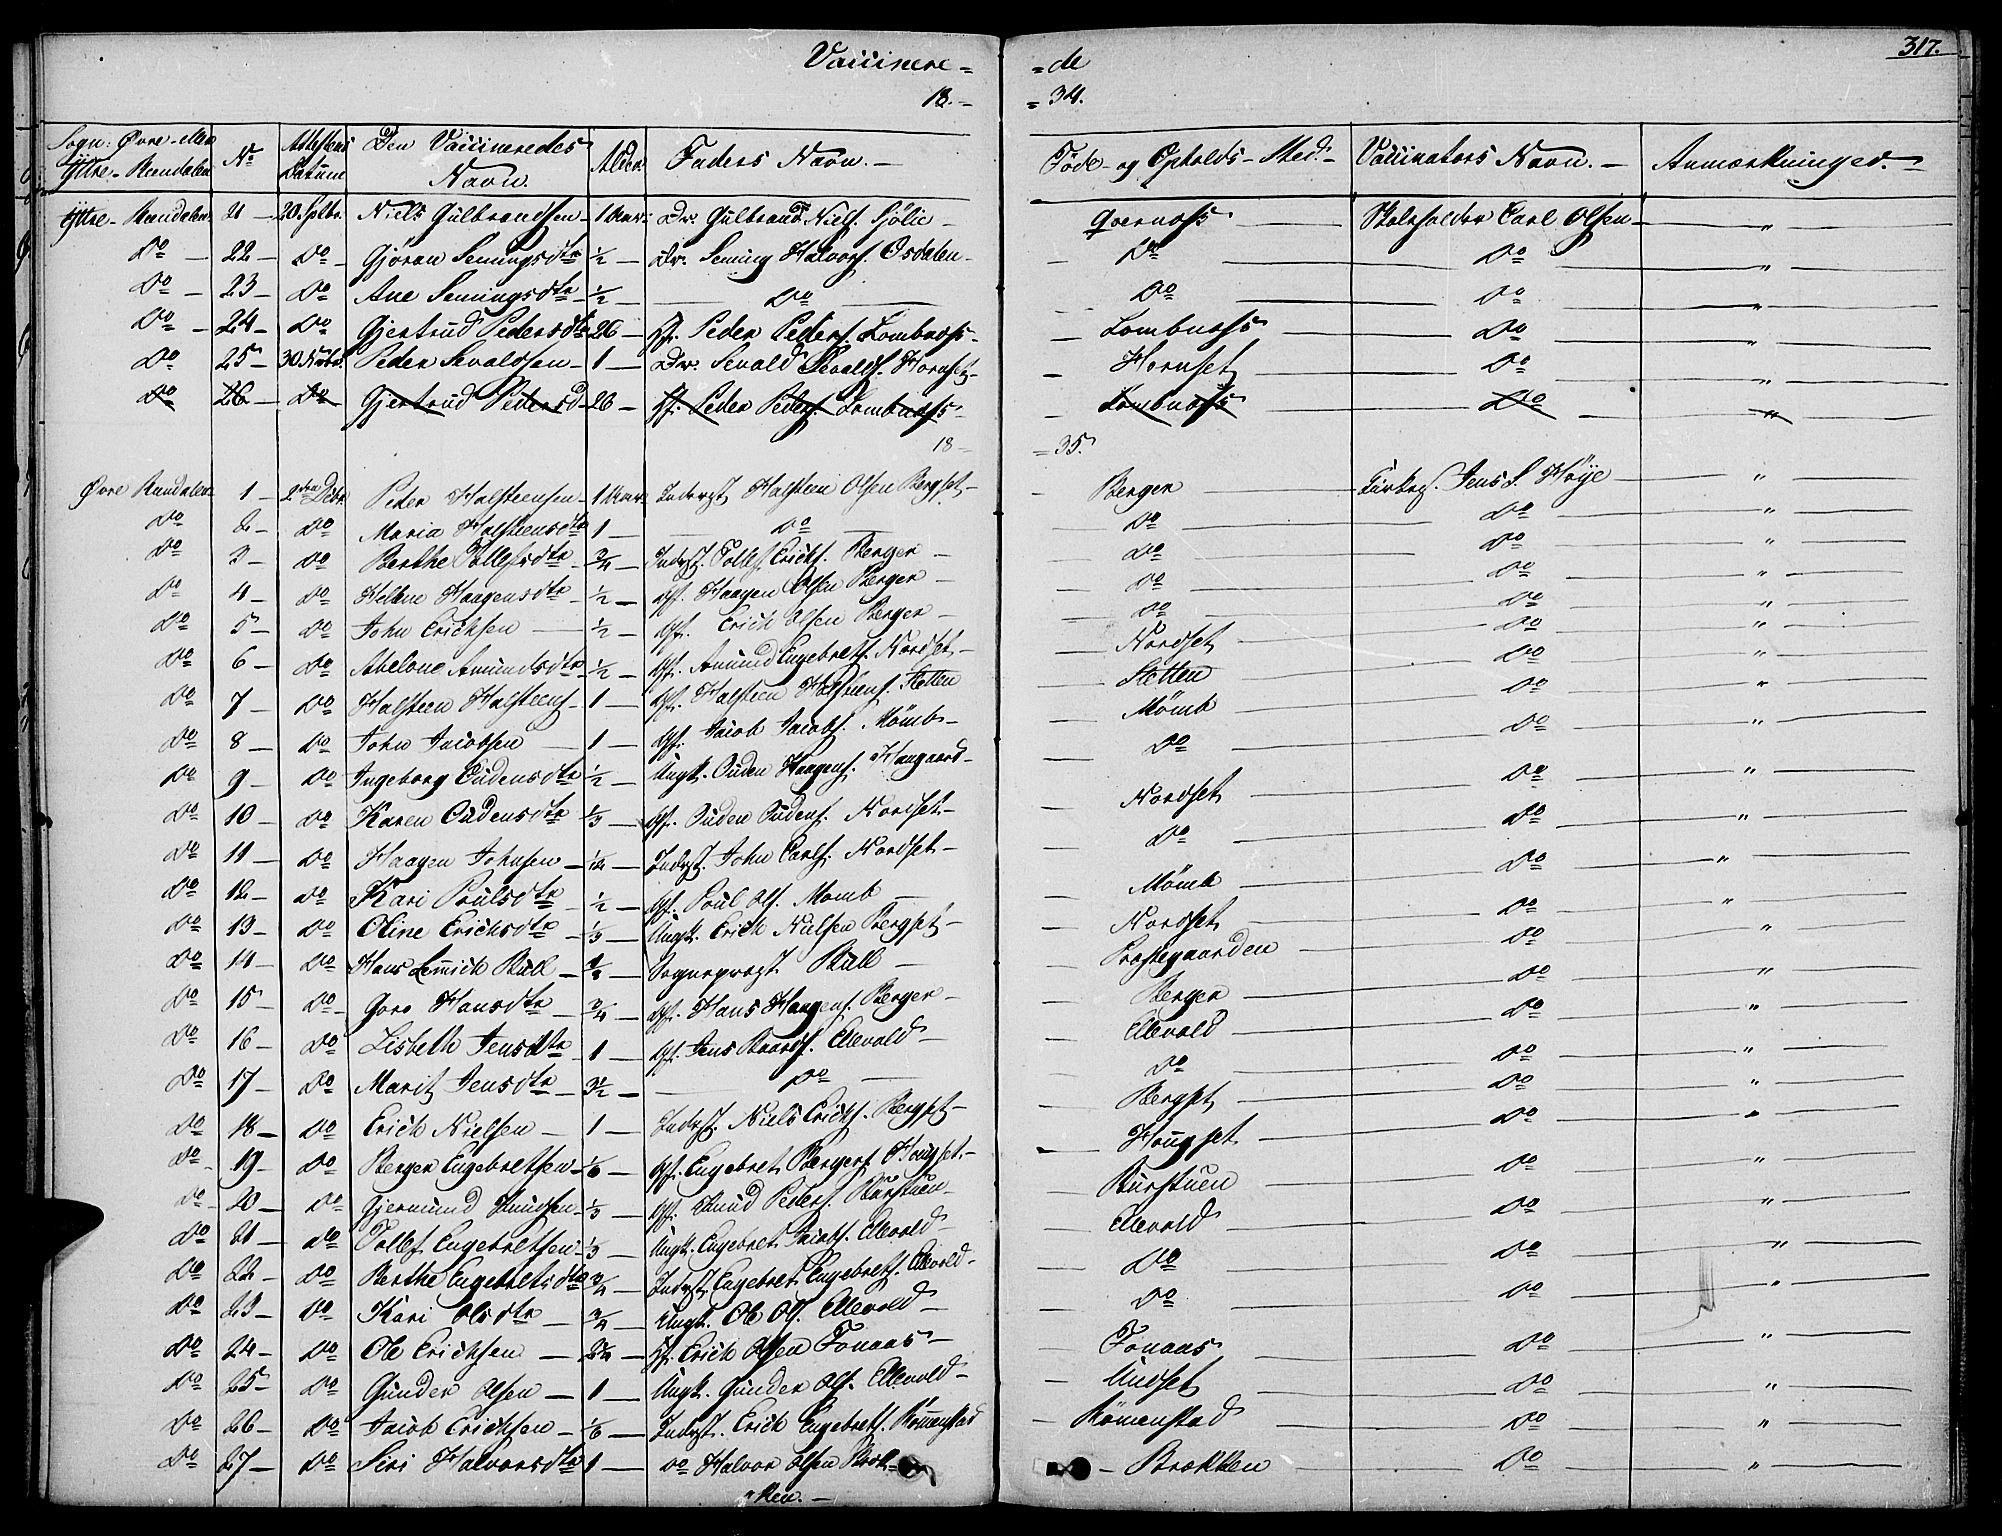 317.
Vaccinere = = de
18. = = 34.
Sogn: Øvre eller Ytre-Rendalen | No | Attestens Datum | Den Vaccineredes Navn. | Alder | Faders Navn. — | Føde- og Opholds-Sted — | Vaccinators Navn. — | Anmærkninger. —
Ytre-Rendalen 21 — 20. Sptbr. Niels Gulbrandsen — 1 Aar: Gulbrand Niels. Sjölie — Qvernæss — Skoleholder Carl Olsen — "
Do — 22 — Do — Gjöran Semingsdtr 1/2 — Seming Halvors. Osdalen — Do — Do — "
Do — 23 — Do — Ane Semingsdtr 1/2 — Do — Do — Do — "
Do — 24 — Do — Gjertrud Pedersdtr 26 — Peder Peders. Lombnæss — Lombnæss — Do — "
Do — 25 — 30. Peder Sevaldsen — 1 — Sevald Sevalds. Hornset — Hornset — Do — "
Do — 26 — Do — Gjertrud Pedersd — 26 — Peder Peders. Lombnæss — Lombnæss — Do — "
18 = = 35.
Øvre Rendalen 1 — Peder Halsteensen — 1 Aar Inderst Halsteen Olsen Bergset — Berger — Jens S. Höye — "
Do 2 — Do Maria Halsteensdtr 1 — Do — Do — Do — "
Do 3 — Do Berthe Tollefsdtr 3/4 — Inderst. Tollef Erichs. Berger — Do — Do — "
Do 4 — Do Helene Haagensdtr 1/2 — Gf. Haagen Olsen Berger — Do — Do — "
Do 5 — Do John Erichsen — 1/2 — Gf. Erich Olsen Berger — Do — Do — "
Do 6 — Do Abelone Amundsdtr 1/2 — Gf. Amund Engebrets. Nordset — Nordset — Do — "
Do 7 — Do Halsteen Halsteens. — 1 — Gf. Halsteen Halsteens. Sletten — Sletten — Do — "
Do 8 — Do John Jacobsen — 1 — Gf. Jacob Jacobs. Mömb — Mömb — Do — "
Do 9 — Do Ingeborg Oudensdtr 1/2 — Ungk. Ouden Haagens. Haugaard — Do — Do — "
Do 10 — Do Karen Oudensdtr 1/3 — Gf. Ouden Oudens. Nordset — Nordset — Do — "
Do 11 — Do Haagen Johnsen — Inderst. John Carls. Nordset — Do — Do — "
Do 12 — Do Kari Poulsdtr — 1/2 — Gf. Poul Ols. Momb — Mömb — Do — "
Do 13 — Do Oline Erichsdtr — 1/3 — Ungk. Erich Nielsen Bergset — Nordset — Do — "
Do 14 — Do Hans Bull — Sognepræst Bull — Præstegaarden — Do — "
Do 15 — Do Goro Hansdtr — 3/4 — Gf. Hans Haagens. Berger — Berger — Do — "
Do 16 — Do Lisbeth Jensdtr — 1 — Gf. Jens Baards. Ellevold — Ellevold — Do — "
Do 17 — Do Marit Jensdtr — 3 1/2 — Do — Do — Do — "
Do 18 — Do Erich Nielsen — 1 — Inderst. Niels Erichs. Bergset — Bergset — Do — "
Do 19 — Do Berger Engebretsen — 1/6 — Gf. Engebret Bergers. Hougset — Hougset — Do — "
Do 20 — Do Gjermund Knudsen — 1/3 — Gf. Knud Peders. Burstuen — Burstuen — Do — "
Do 21 — Do Tollef Engebretsen — 1/3 — Ungk. Engebret Jacobs. Ellevold — Ellevold — Do — "
Do 22 — Do Berthe Engebretsdtr 3/4 — Inderst. Engebret Engebrets. Ellevold — Do — Do — "
Do 23 — Do Kari Olsdtr — 3/4 — Ungk. Ole Ols. Ellevold — Do — Do — "
Do 24 — Do Ole Erichsen — Erich Olsen Fonaas — Fonaas — Do — "
Do 25 — Do Gunder Olsen — 1 — Ungk. Gunder Ols. Ellevold — Undset — Do — "
Do 26 — Do Jacob Erichsen — 1/6 — Inderst. Erich Engebrets. Römenstad — Römenstad — Do — "
Do 27 — Do Siri Halvorsdtr 1 — Do Halvor Olsen Bræk= — Brækken — Do — "
"ken. —